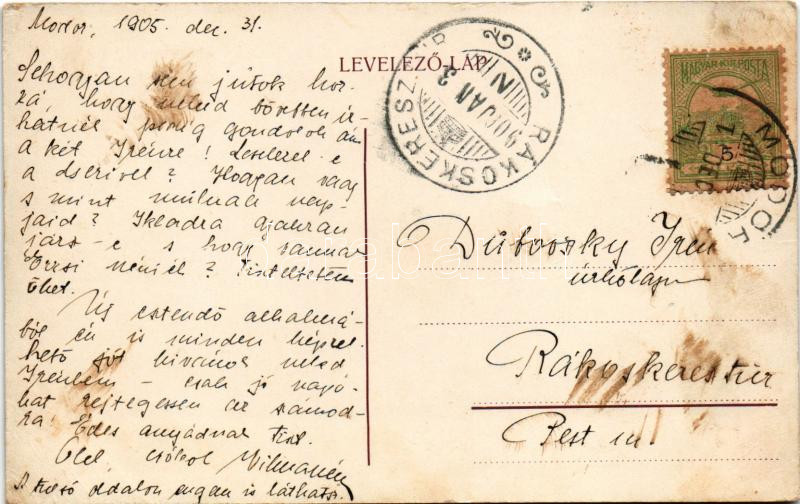 Modor, 1905. dec. 31.
LEVELEZŐ-LAP.
Sehogyan sem jutok hoz-
zá, hogy neked bővebben ír-
hatnék pedig gondolok ám
a két Irénre! Leveleztek-e
a Dserivel? Hogyan vagy
s mint múlnak nap-
jaid? Ikladra gyakran
jársz-e s hogy vannak
Őrzsi néniék? Tiszteltetem
Őket.
Új esztendő alkalmá-
ból én is minden képzel-
hető jót kívánok neked
Irénkém - csak jó napo-
kat rejtegessen az számod-
ra! Édes anyádnak tiszt.
Ölel, csókol Vilmanén
A túlsó oldalon engem is láthatsz.
RÁKOSKERESZTÚR
906 JAN 3
N
MAGYAR KIR. POSTA
5
MODOR
905 DEC 31
Dubovszky Irén
úrhölgy
Rákoskeresztúr
Pest m.